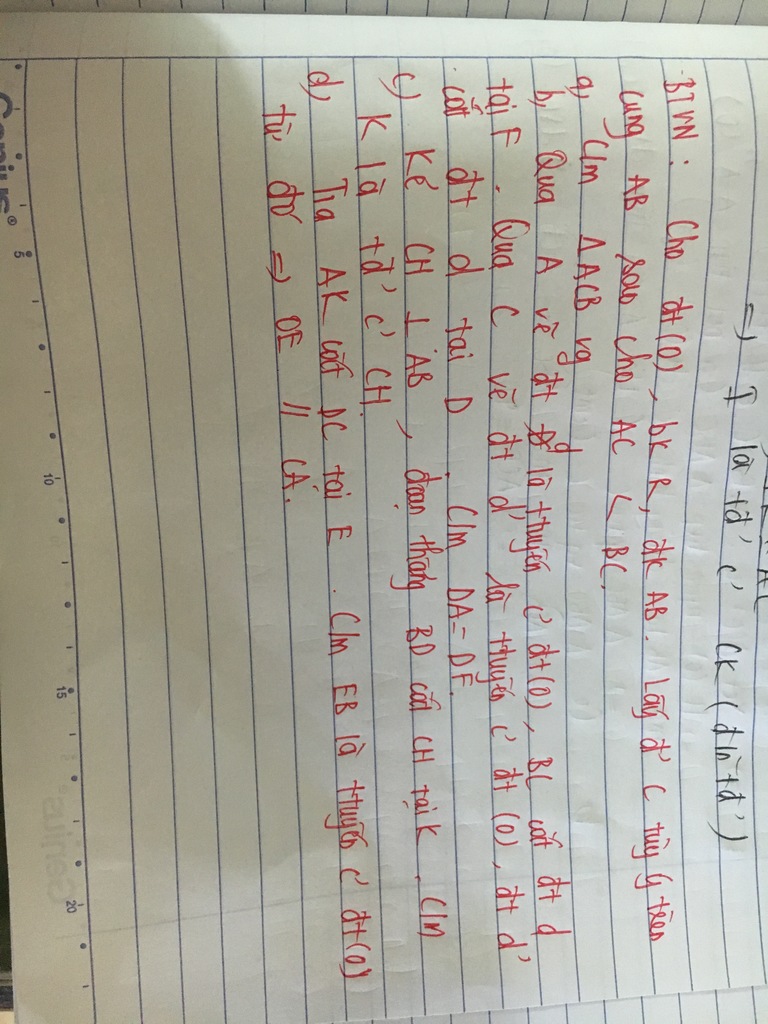 =) I là tđ' c' CK (đln~tđ')
BTVN: Cho đt(O), bk R, đk AB. Lấy đ' C tùy ý trên
cung AB sao cho AC < BC.
a, C/m ΔACB vg
b, Qua A vẽ đt d là ttuyến c' đt(O), BC cắt đt d
tại F. Qua C vẽ đt d' là ttuyến c' đt (O), đt d'
cắt đt d tại D. C/m DA = DF.
c) Kẻ CH ⊥ AB, đoạn thẳng BD cắt CH tại K. C/m
K là tđ' c' CH.
d) Tia AK cắt DC tại E. C/m EB là ttuyến c' đt(O)
từ đó =) OE // CA.
5 10 15 20
Genius®